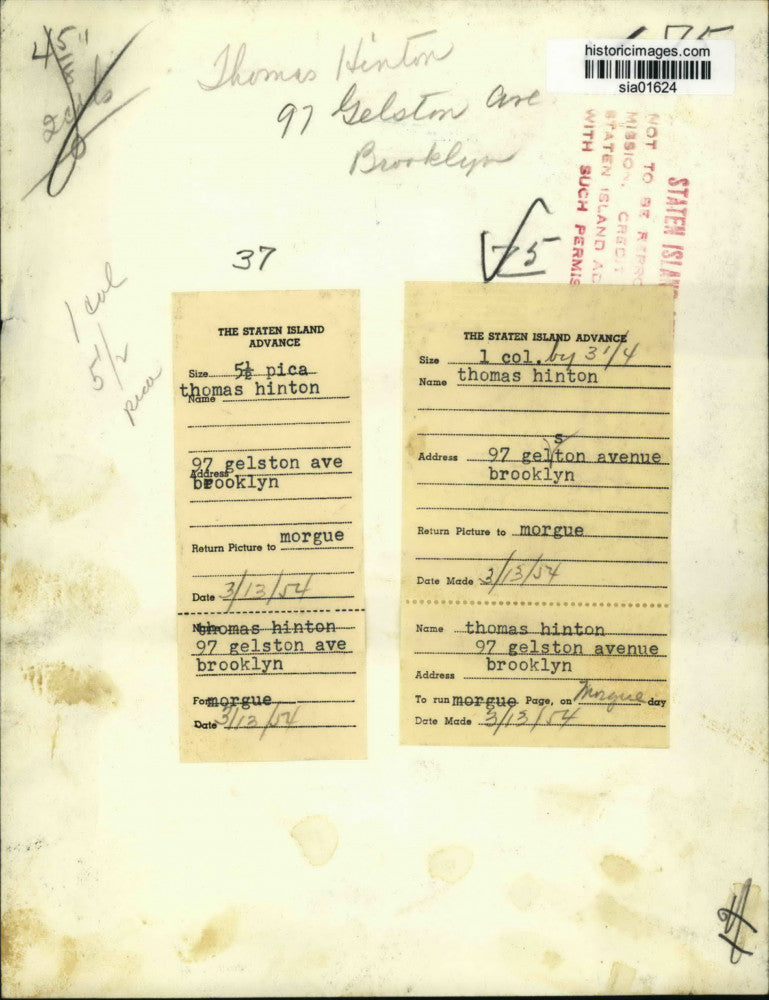 45"
2 cuts
Thomas Hinton
97 Gelston Ave
Brooklyn
175
historicimages.com
sia01624
STATEN ISLAN
NOT TO BE REPRO
MISSION. CREDIT
STATEN ISLAND AD
WITH SUCH PERMIS
37
75
1 col
5 1/2
pica
THE STATEN ISLAND
ADVANCE
Size 5½ pica
thomas hinton
Name
97 gelston ave
Address
brooklyn
Return Picture to morgue
Date 3/13/54
Name thomas hinton
97 gelston ave
brooklyn
For morgue
Date 3/13/54
THE STATEN ISLAND ADVANCE
Size 1 col. by 3 1/4
Name thomas hinton
s
Address 97 gelton avenue
brooklyn
Return Picture to morgue
Date Made 3/13/54
Name thomas hinton
97 gelston avenue
brooklyn
Address
To run morgue Page, on Morgue day
Date Made 3/13/54